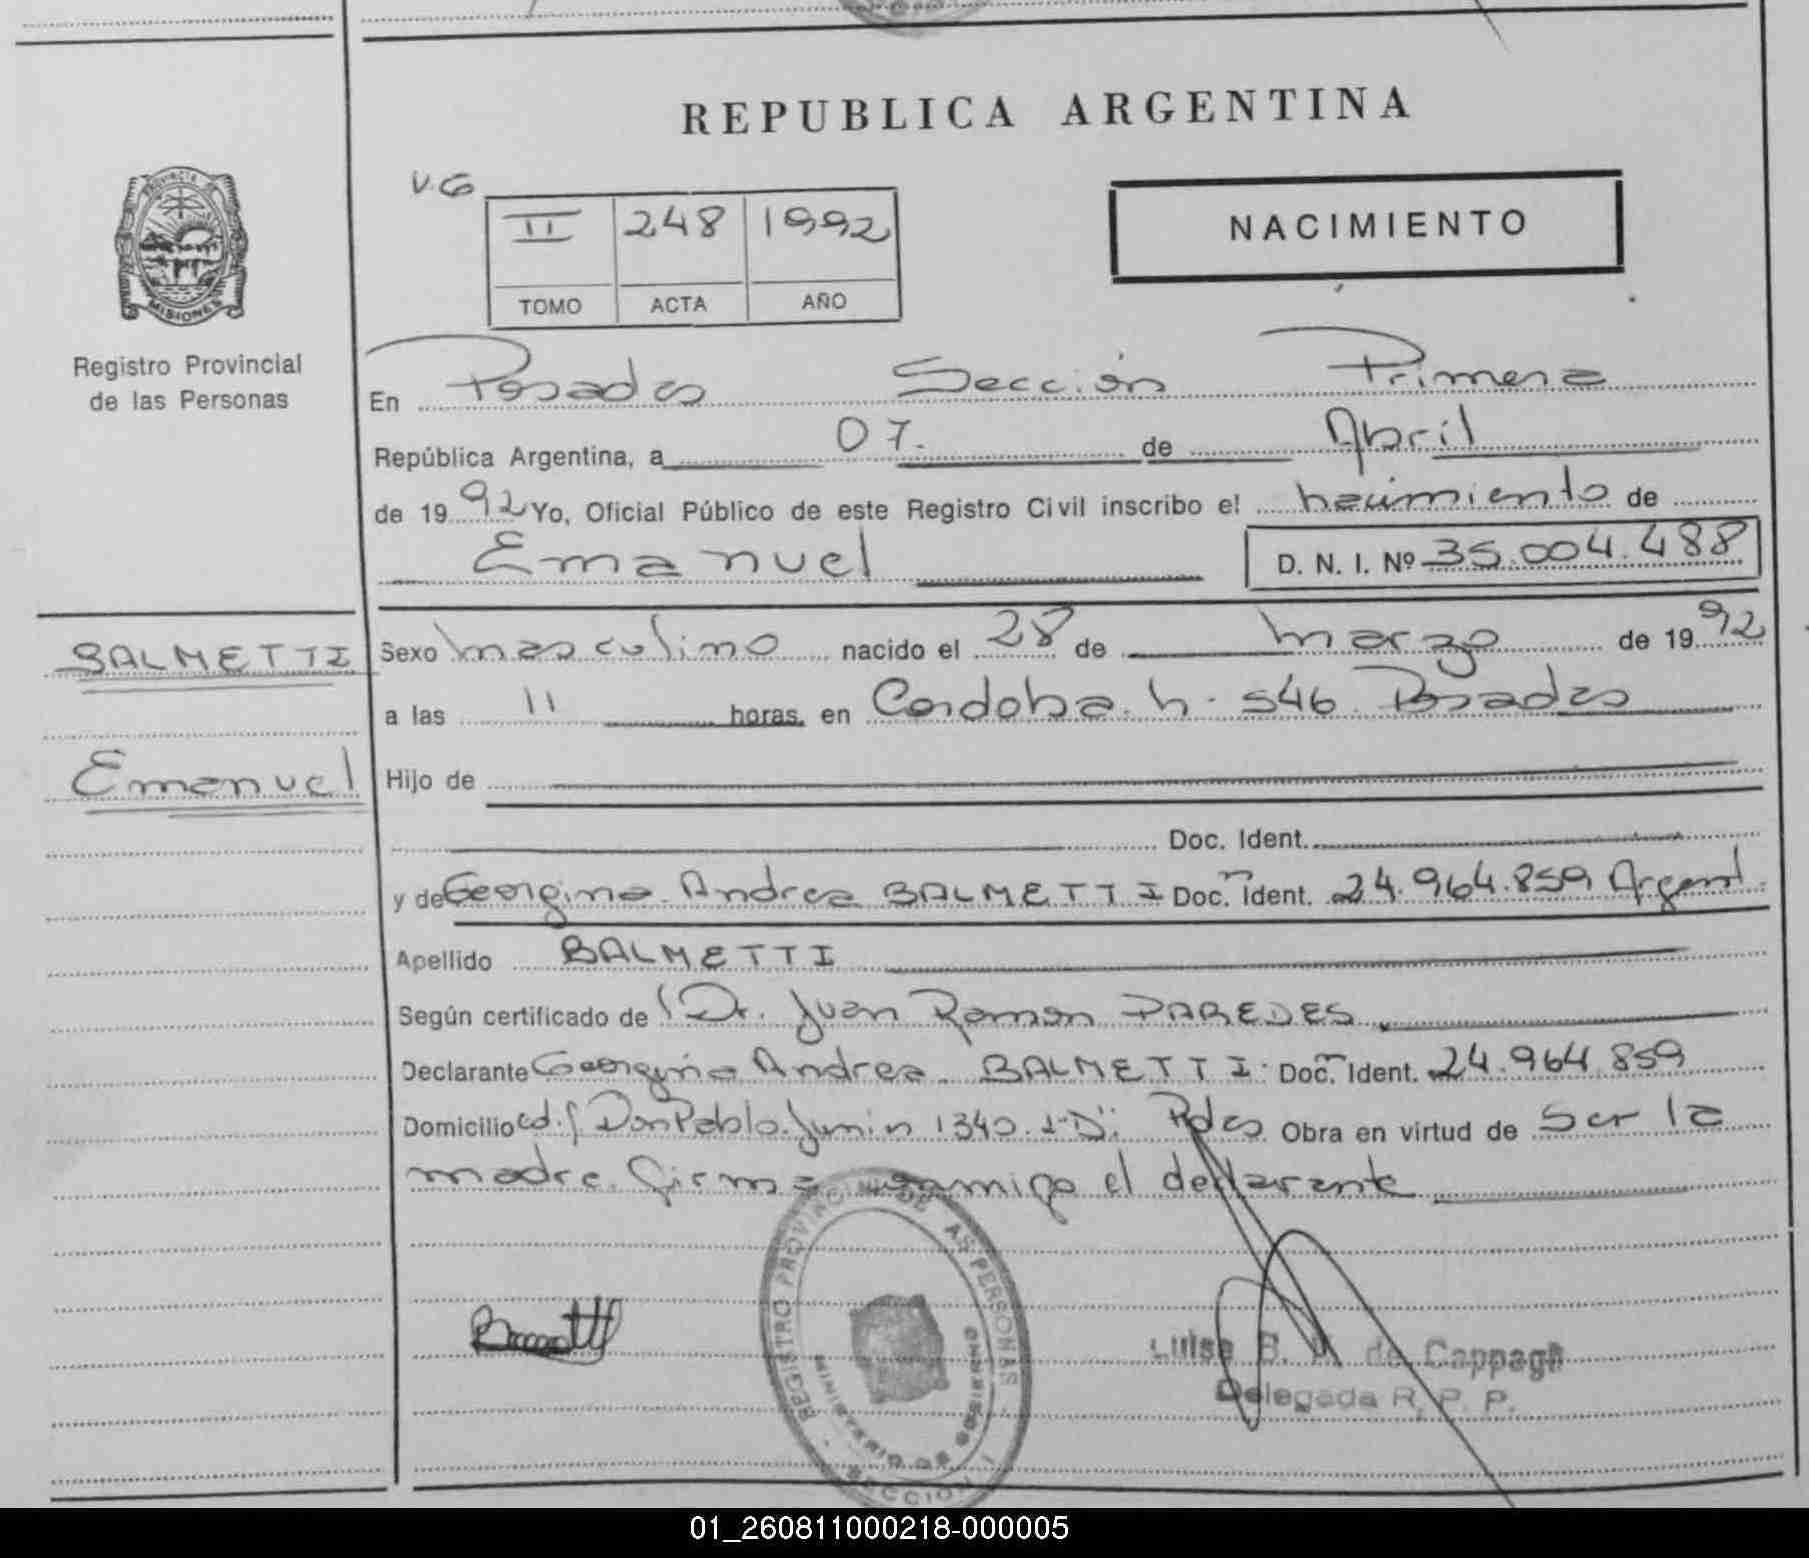 REPUBLICA ARGENTINA
V.G
II 248 1992
TOMO ACTA AÑO
NACIMIENTO
PROVINCIA DE MISIONES
Registro Provincial
de las Personas
En Posadas Sección Primera
República Argentina, a 07. de Abril
de 1992 Yo, Oficial Público de este Registro Civil inscribo el nacimiento de
Emanuel D. N. I. Nº 35.004.488
BALMETTI
Emanuel
Sexo masculino nacido el 28 de marzo de 1992
a las 11 horas en Cordoba n. 546 Posadas
Hijo de
Doc. Ident.
y de Georgina Andrea BALMETTI Doc. Ident. 24.964.859 Argent.
Apellido BALMETTI
Según certificado de Dr. Juan Ramon PAREDES
Declarante Georgina Andrea BALMETTI Doc. Ident. 24.964.859
Domicilio ed. Don Pablo Junin 1340 Pdas Obra en virtud de Ser la
madre. firma conmigo el declarante
REGISTRO PROVINCIAL DE LAS PERSONAS
MINISTERIO DE GOBIERNO
SECCION I
Luisa B. de Cappagli
Delegada R. P. P.
01_260811000218-000005